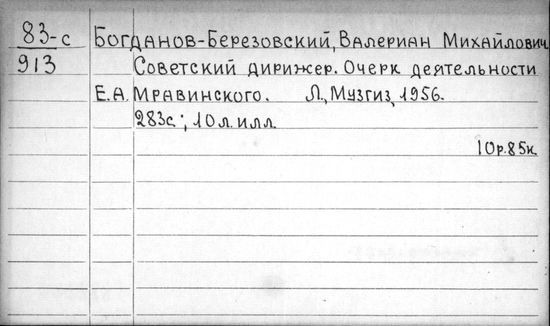 83-с Богданов-Березовский, Валериан Михайлович.
913 Советский дирижер. Очерк деятельности
Е.А. Мравинского. Л., Музгиз, 1956.
283с.; 10 л. илл.
10р.85к.